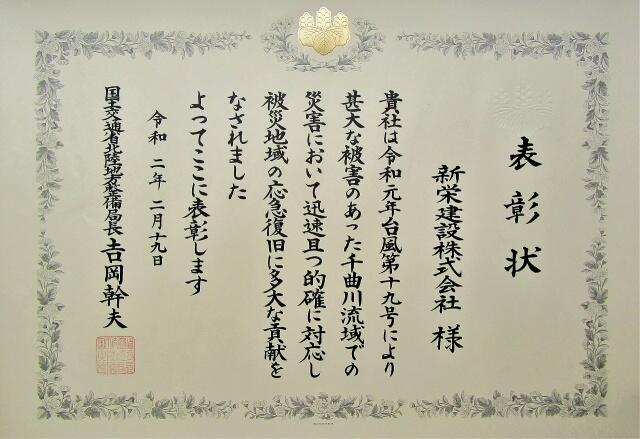 表彰状
新栄建設株式会社 様
貴社は令和元年台風第十九号により
甚大な被害のあった千曲川流域での
災害において迅速且つ的確に対応し
被災地域の応急復旧に多大な貢献を
なされました
よってここに表彰します
令和 二年 二月十九日
国土交通省北陸地方整備局長 吉岡幹夫